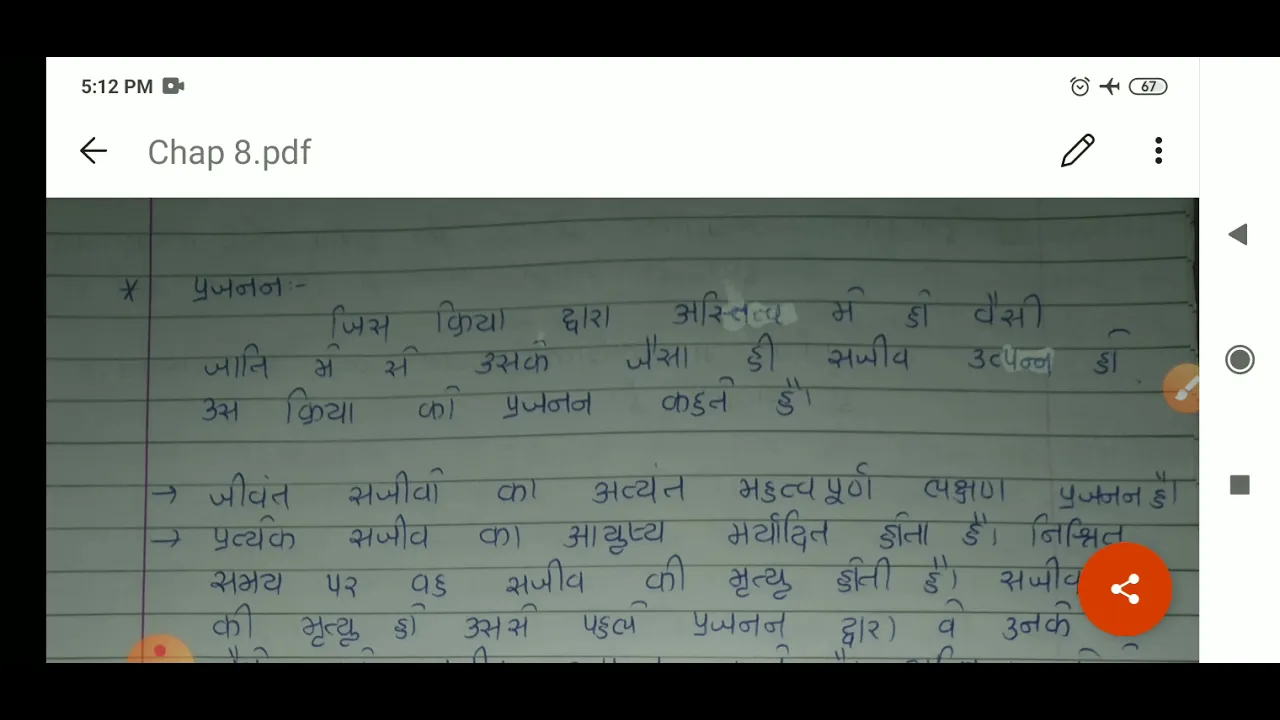 5:12 PM
67
Chap 8.pdf
* प्रजनन:-
जिस क्रिया द्वारा अस्तित्व में हो वैसी
जाति में से उसके जैसा ही सजीव उत्पन्न हो
उस क्रिया को प्रजनन कहते है।
→ जीवंत सजीवो का अत्यंत महत्वपूर्ण लक्षण प्रजनन है।
→ प्रत्येक सजीव का आयुष्य मर्यादित होता है। निश्चित
समय पर वह सजीव की मृत्यू होती है। सजीव
की मृत्यू हो उससे पहले प्रजनन द्वारा वे उनके